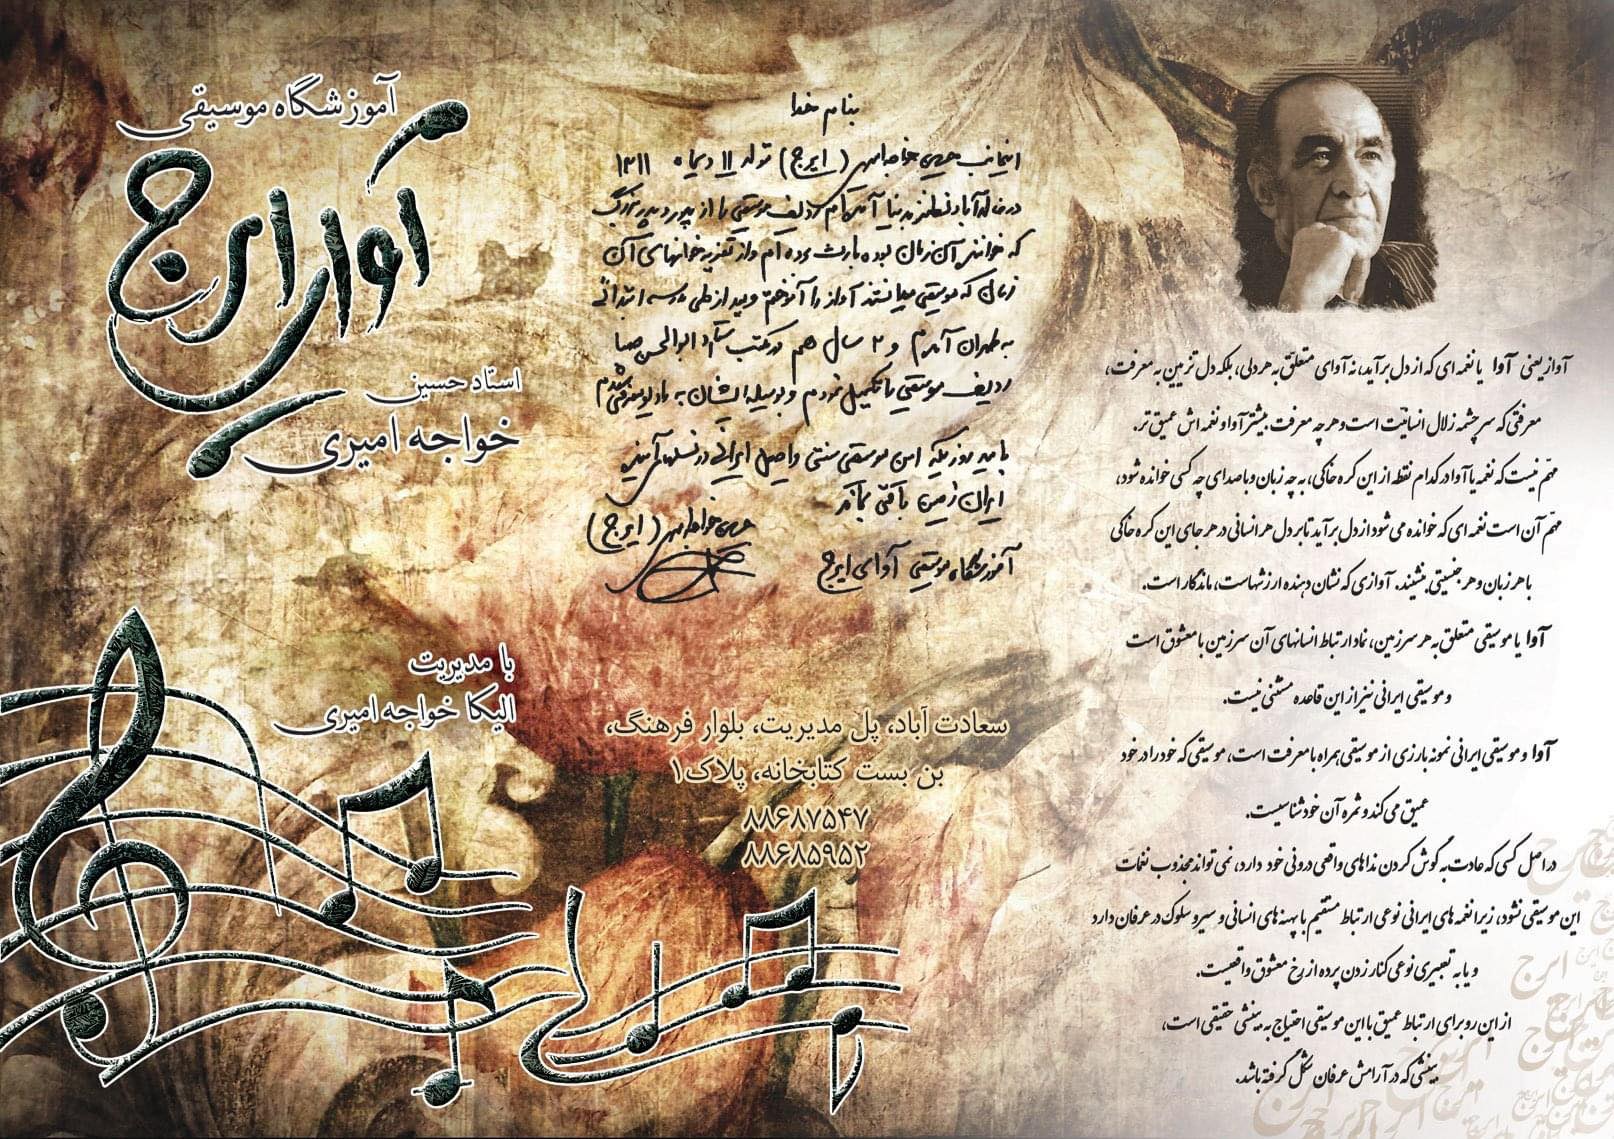 آموزشگاه موسیقی
آوای ایرج
استاد حسین
خواجه امیری
با مدیریت
الیکا خواجه امیری
بنام خدا
اینجانب حسین خواجه امیری (ایرج) تولد ۱۱ دیماه ۱۳۱۱
در خالدآباد نطنز بدنیا آمده‌ام ردیف موسیقی را از پدر و پدر بزرگ
که خواننده آن زمان بوده بارث برده ام و از تعزیه خوانهای آن
زمان که موسیقی میدانستند آواز را آموختم و بعد از طی مدرسه ابتدائی
به طهران آمدم و ۲ سال هم در مکتب استاد ابوالحسن صبا
ردیف موسیقی را تکمیل نمودم و بوسیله ایشان به رادیو معرفی شدم
بامید روزیکه این موسیقی سنتی و اصیل ایرانی در نسلهای آینده
ایران زمین باقی بماند
حسین خواجه امیری (ایرج)
آموزشگاه موسیقی آوای ایرج
سعادت آباد، پل مدیریت، بلوار فرهنگ،
بن بست کتابخانه، پلاک۱
۸۸۶۸۷۵۴۷
۸۸۶۸۵۹۵۲
آواز یعنی آوا یا نغمه ای که از دل برآید، نه آوای متعلق به هر دلی، بلکه دل تزیین به معرفت،
معرفتی که سرچشمه زلال انسانیت است و هر چه معرفت بیشتر آوا و نغمه اش عمیق تر.
مهم نیست که نغمه یا آوا در کدام نقطه از این کره خاکی، به چه زبان و با صدای چه کسی خوانده شود،
مهم آن است نغمه ای که خوانده می شود از دل برآید تا بر دل هر انسانی در هر جای این کره خاکی
با هر زبان و هر جنسیتی بنشیند. آوازی که نشان دهنده ارزشهاست، ماندگار است.
آوا یا موسیقی متعلق به هر سرزمین، نماد ارتباط انسانهای آن سرزمین با معشوق است
و موسیقی ایرانی نیز از این قاعده مستثنی نیست.
آوا و موسیقی ایرانی نمونه بارزی از موسیقی همراه با معرفت است، موسیقی که خود را در خود
عمیق می کند و ثمره آن خودشناسیست.
در اصل کسی که عادت به گوش کردن نداهای واقعی درونی خود دارد، نمی تواند مجذوب نغمات
این موسیقی نشود، زیرا نغمه های ایرانی نوعی ارتباط مستقیم با پهنه های انسانی و سیر و سلوک در عرفان دارد
و یا به تعبیری نوعی کنار زدن پرده از رخ معشوق واقعیست.
از این رو برای ارتباط عمیق با این موسیقی احتیاج به بینشی حقیقی است،
بینشی که در آرامش عرفان شکل گرفته باشد.
ایرج